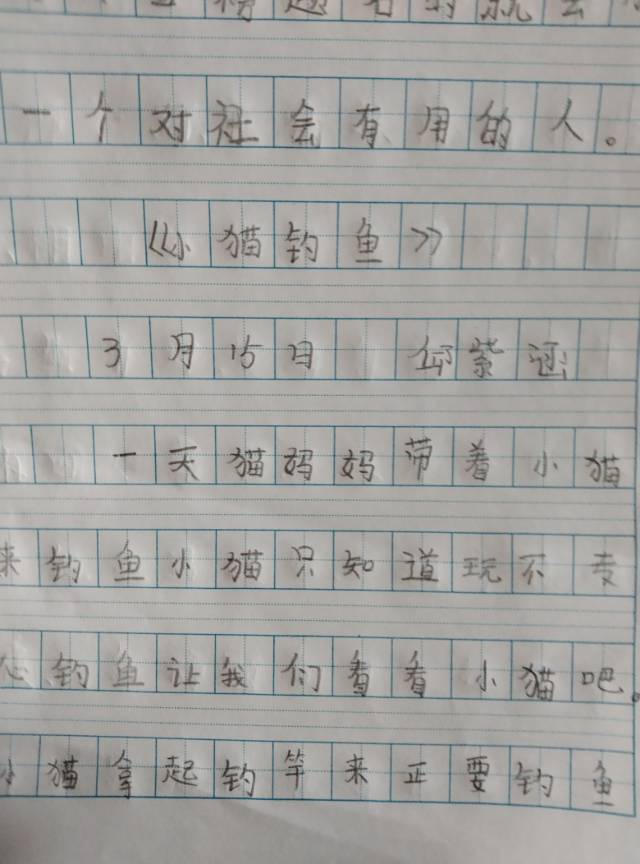 一个对社会有用的人。
《小猫钓鱼》
3月15日 邱紫涵
一天猫妈妈带着小猫
来钓鱼小猫只知道玩不专
心钓鱼让我们看看小猫吧。
小猫拿起钓竿来正要钓鱼